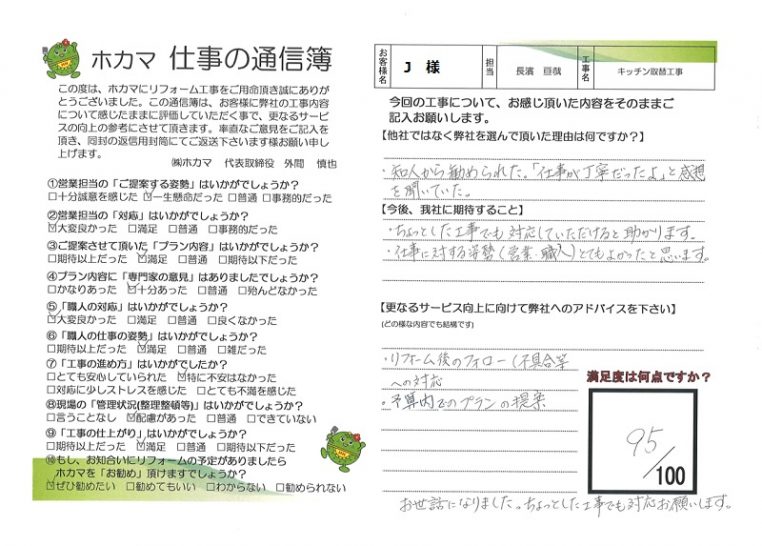 ホカマ 仕事の通信簿
この度は、ホカマにリフォーム工事をご用命頂き誠にありが
とうございました。この通信簿は、お客様に弊社の工事内容
について感じたままに評価していただく事で、更なるサービ
スの向上の参考にさせて頂きます。率直なご意見をご記入を
頂き、同封の返信用封筒にてご返送下さいます様お願い申し
上げます。
㈱ホカマ 代表取締役 外間 慎也
①営業担当の「ご提案する姿勢」はいかがでしょうか?
□十分誠意を感じた ☑一生懸命だった □普通 □事務的だった
②営業担当の「対応」はいかがでしょうか?
☑大変良かった □満足 □普通 □事務的だった
③ご提案させて頂いた「プラン内容」はいかがでしょうか?
□期待以上だった ☑満足 □普通 □期待以下だった
④プラン内容に「専門家の意見」はありましたでしょうか?
□かなりあった ☑十分あった □普通 □殆んどなかった
⑤「職人の対応」はいかがでしょうか?
☑大変良かった □満足 □普通 □良くなかった
⑥「職人の仕事の姿勢」はいかがでしょうか?
□期待以上だった ☑満足 □普通 □雑だった
⑦「工事の進め方」はいかがでしたか?
□とても安心していられた ☑特に不安はなかった
□対応に少しストレスを感じた □とても不満を感じた
⑧現場の「管理状況(整理整頓等)」はいかがでしょうか?
□言うことなし ☑配慮があった □普通 □できていない
⑨「工事の仕上がり」はいかがでしょうか?
□期待以上だった ☑満足 □普通 □期待以下だった
⑩もし、お知合いにリフォームの予定がありましたら
ホカマを「お勧め」頂けますでしょうか?
☑ぜひ勧めたい □勧めてもいい □わからない □勧められない
お客様名 J 様 担当 長濱 亘哉 工事名 キッチン取替工事
今回の工事について、お感じ頂いた内容をそのままご
記入お願いします。
【他社ではなく弊社を選んで頂いた理由は何ですか?】
・知人から勧められた。「仕事が丁寧だったよ」と感想
を聞いていた。
【今後、我社に期待すること】
・ちょっとした工事でも対応していただけると助かります。
・仕事に対する姿勢(営業・職人)とてもよかったと思います。
【更なるサービス向上に向けて弊社へのアドバイスを下さい】
(どの様な内容でも結構です)
・リフォーム後のフォロー(不具合等
への対応
・予算内でのプランの提案
満足度は何点ですか?
95/100
お世話になりました。ちょっとした工事でも対応お願いします。